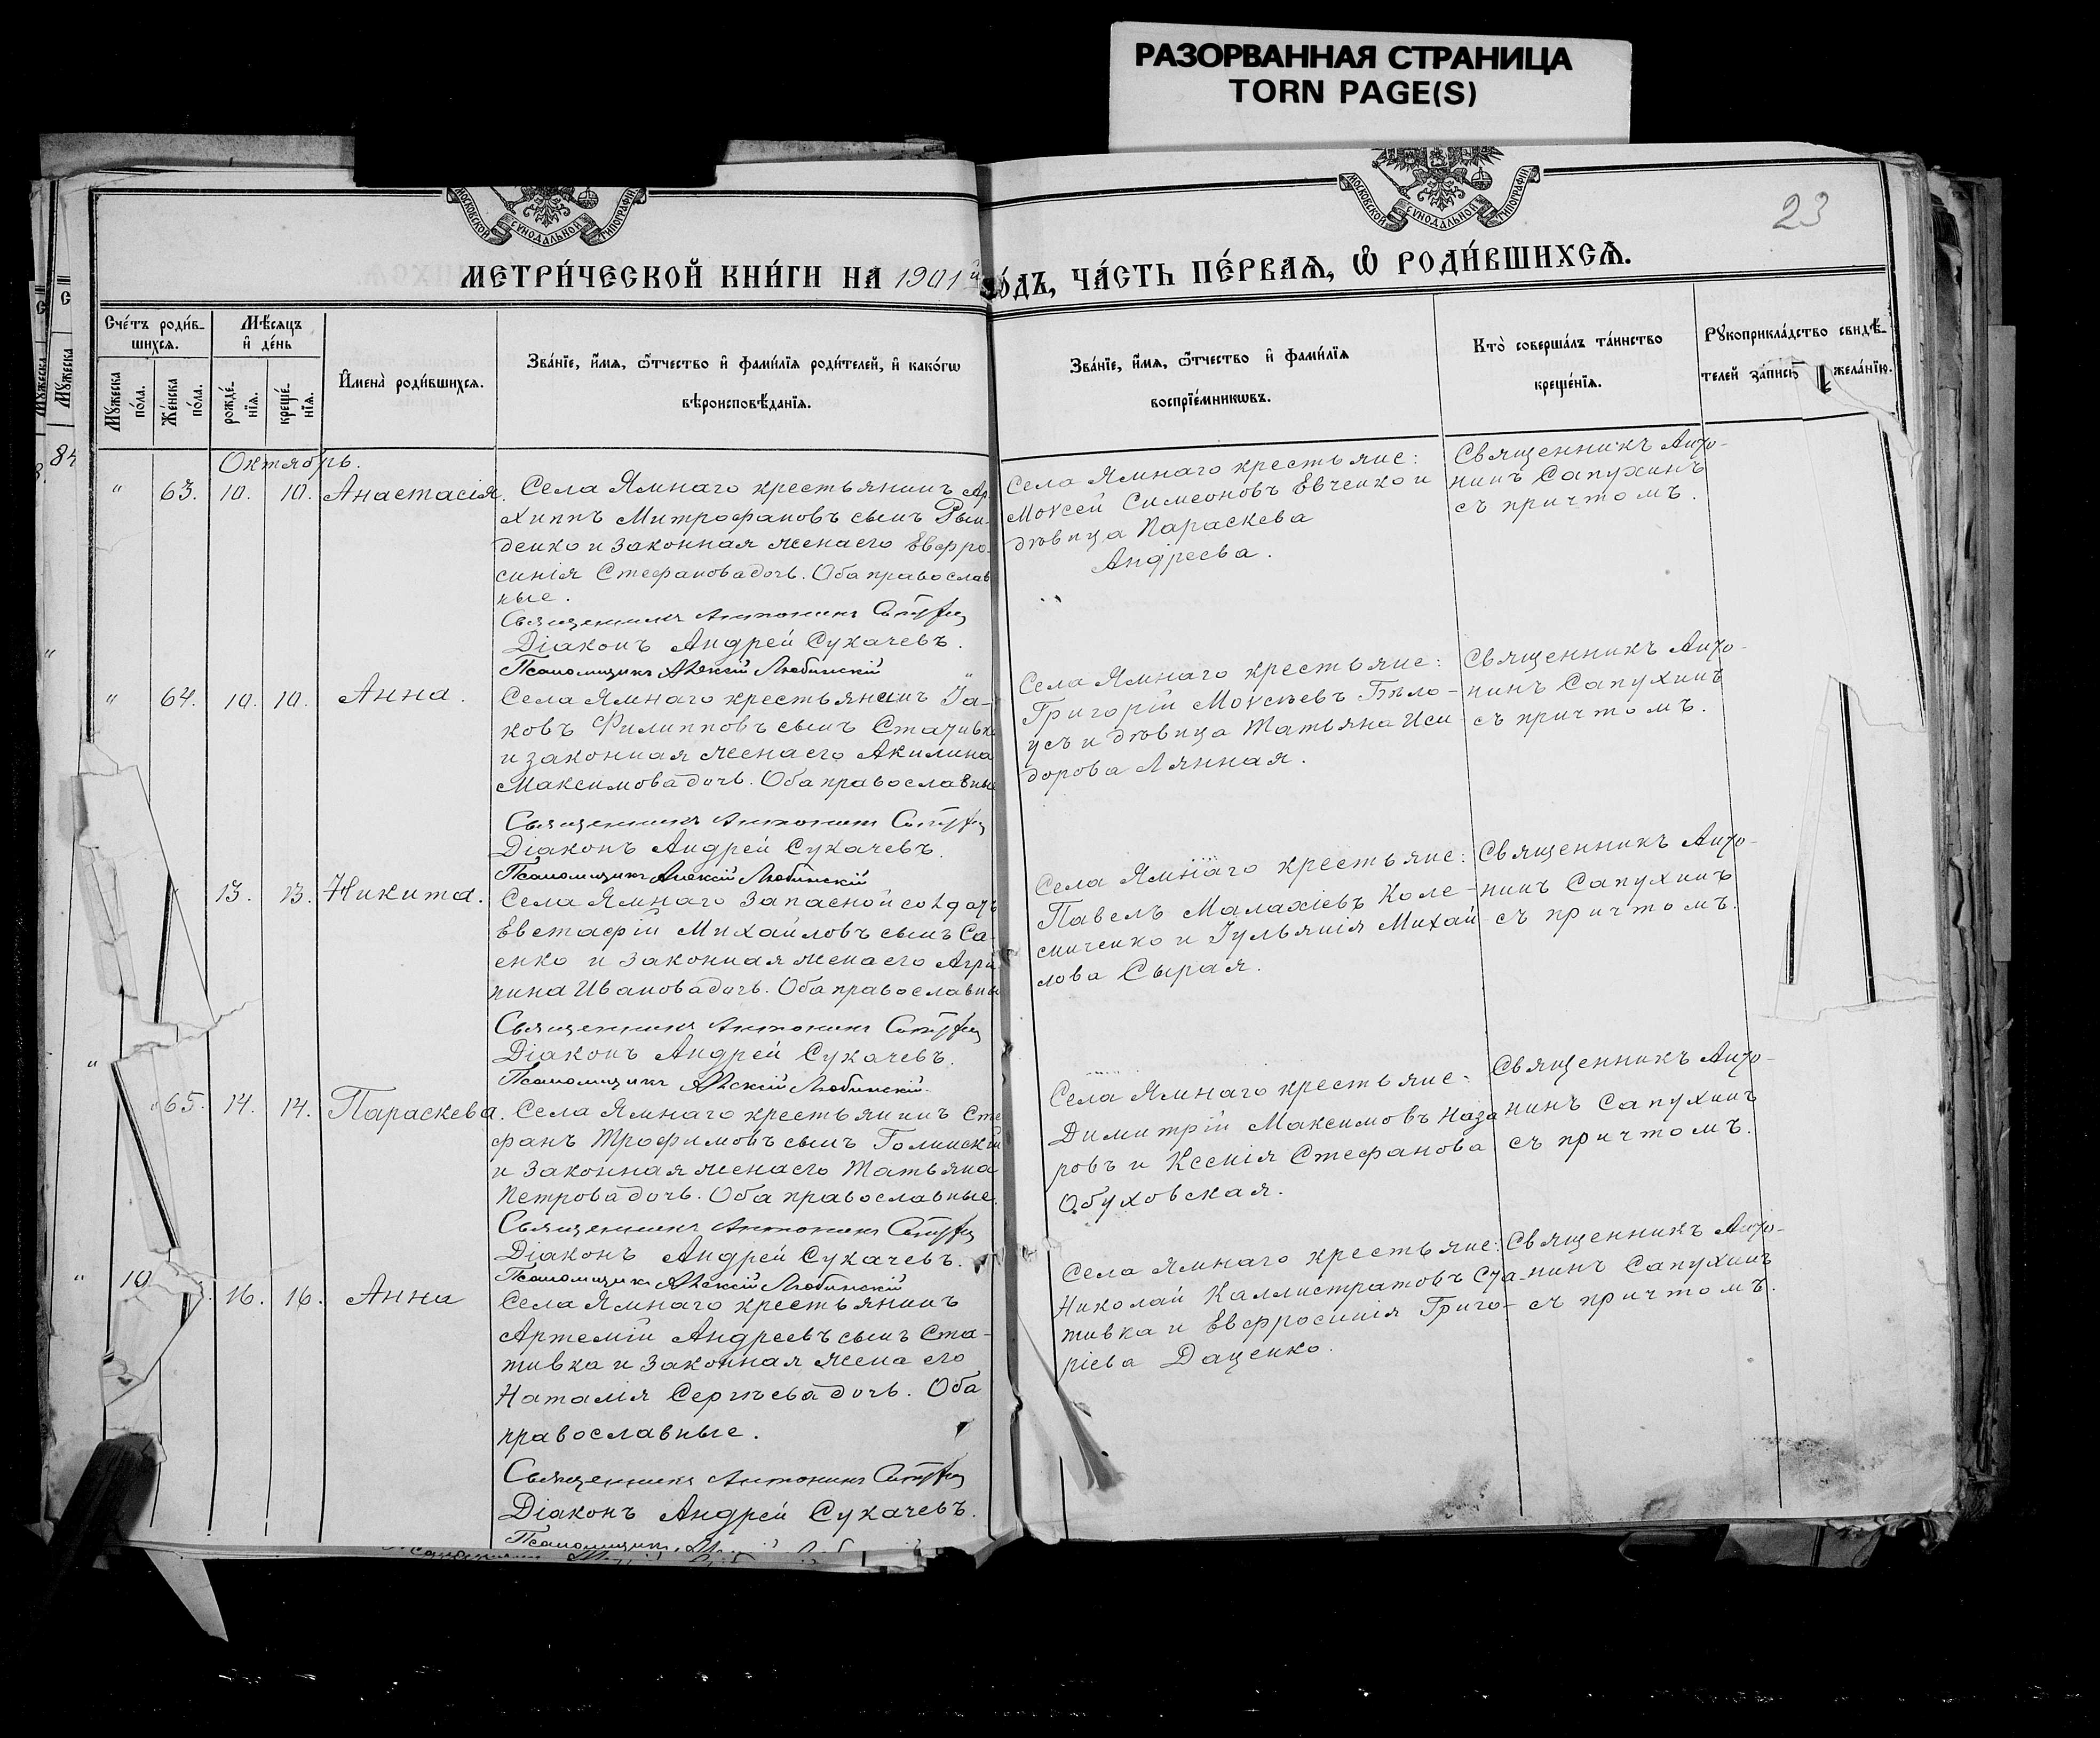 РАЗОРВАННАЯ СТРАНИЦА
TORN PAGE(S)
МОСКОВСКОЙ СѴНОДАЛЬНОЙ ТИПОГРАФІИ
МОСКОВСКОЙ СѴНОДАЛЬНОЙ ТИПОГРАФІИ
23
МЕТРИ́ЧЕСКОЙ КНИ́ГИ НА 1901й го́дъ, ЧА́СТЬ ПЕ́РВАѦ, Ѡ҆ РОДИ́ВШИХСѦ.
Сче́тъ роди́в-
шихсѧ.
Мѣ́сѧцъ
и҆ де́нь
Мꙋ́жеска по́ла.
Же́нска по́ла.
рожде́-нїѧ.
креще́-нїѧ.
И҆мена̀ роди́вшихсѧ.
Зва́нїе, и҆́мѧ, ѻ҆́тчество и҆ фами́лїѧ роди́телей, и҆ како́гѡ
вѣроисповѣ́данїѧ.
Зва́нїе, и҆́мѧ, ѻ҆́тчество и҆ фами́лїѧ
воспрїе́мникѡвъ.
Кто̀ соверша́лъ та́инство
креще́нїѧ.
Рꙋкоприкла́дство свидѣ́-
телей за́писи жела́нїю.
Октябрь.
" 63. 10. 10. Анастасія.
Села Ямнаго крестьянинъ Ар-
хиппъ Митрофановъ сынъ Рын-
денко и законная жена его Евфро-
синія Стефанова дочь. Оба православ
ные.
Священникъ Антонинъ
Діаконъ Андрей Сукачевъ.
Псаломщикъ Алексій Любинскій
Села Ямнаго крестьяне:
Моѵсей Симеоновъ Евченко и
дѣвица Параскева
Андреева.
Священникъ Анто-
нинъ Сапухинъ
съ причтомъ.
" 64. 10. 10. Анна.
Села Ямнаго крестьянинъ Іа-
ковъ Филипповъ сынъ Стативка
и законная жена его Акилина
Максимова дочь. Оба православные
Священникъ Антонинъ
Діаконъ Андрей Сукачевъ.
Псаломщикъ Алексій Любинскій
Села Ямнаго крестьяне:
Григорій Моѵсѣевъ Бѣло-
усъ и дѣвица Татьяна Иси
дорова Лянная.
Священникъ Анто-
нинъ Сапухинъ
съ причтомъ.
13. 13. Никита.
Села Ямнаго запасной солдатъ
Евстафій Михайловъ сынъ Са-
енко и законная жена его Агри
пина Иванова дочь. Оба православны
Священникъ Антонинъ
Діаконъ Андрей Сукачевъ.
Псаломщикъ Алексій Любинскій
Села Ямнаго крестьяне:
Павелъ Малахіевъ Коле-
сниченко и Іульянія Михай
лова Сырая.
Священникъ Анто-
нинъ Сапухинъ
съ причтомъ.
" 65. 14. 14. Параскева.
Села Ямнаго крестьянинъ Сте
фанъ Трофимовъ сынъ Голинскій
и законная жена его Татьяна
Петрова дочь. Оба православные.
Священникъ Антонинъ
Діаконъ Андрей Сукачевъ.
Псаломщикъ Алексій Любинскій
Села Ямнаго крестьяне:
Димитрій Максимовъ Наза
ровъ и Ксенія Стефанова
Обуховская.
Священникъ Анто-
нинъ Сапухинъ
съ причтомъ.
16. 16. Анна
Села Ямнаго крестьянинъ
Артемій Андреевъ сынъ Ста-
тивка и законная жена его
Наталія Сергѣева дочь. Оба
православные.
Священникъ Антонинъ
Діаконъ Андрей Сукачевъ.
Псаломщикъ
Села Ямнаго крестьяне:
Николай Каллистратовъ Ста-
тивка и Евфросинія Григо-
ріева Даценко.
Священникъ Анто-
нинъ Сапухинъ
съ причтомъ.